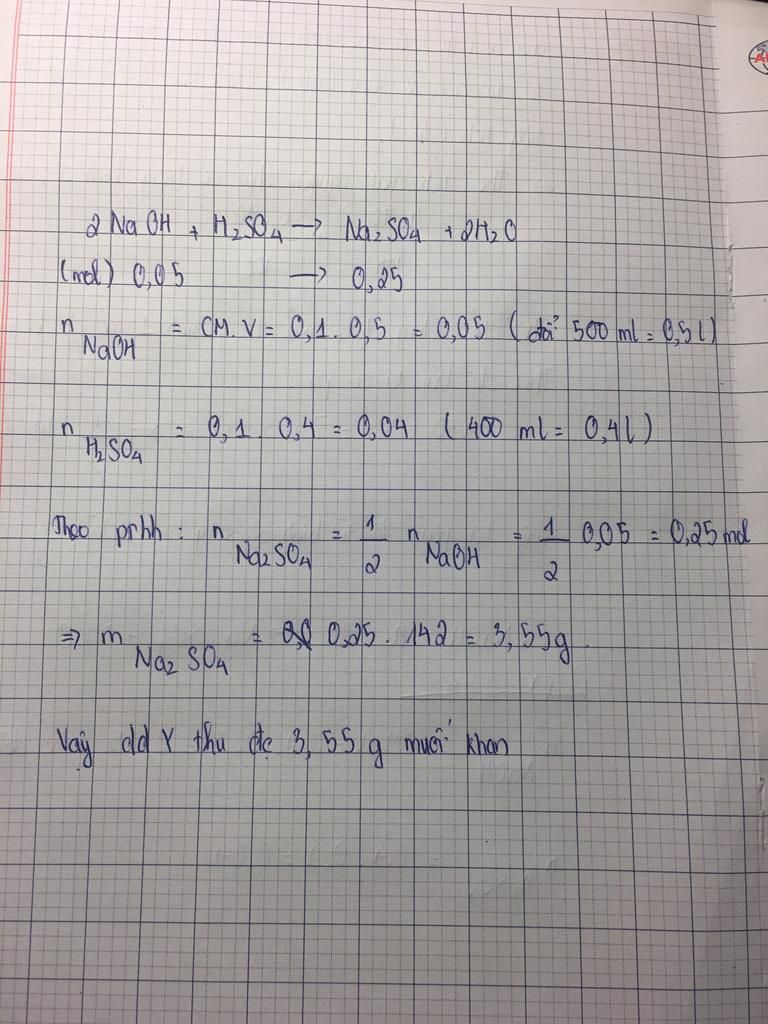 2 NaOH + H₂SO₄ → Na₂SO₄ + 2H₂O
(mol) 0,05 → 0,25
n NaOH = CM.V = 0,1. 0,5 = 0,05 ( đổi 500 ml = 0,5 l)
n H₂SO₄ = 0,1. 0,4 = 0,04 ( 400 ml = 0,4 l)
Theo prhh : n Na₂SO₄ = 1/2 n NaOH = 1/2 0,05 = 0,25 mol
⇒ m Na₂SO₄ = 0,25. 142 = 3,55g.
Vậy dd Y thu đc 3,55 g muối khan